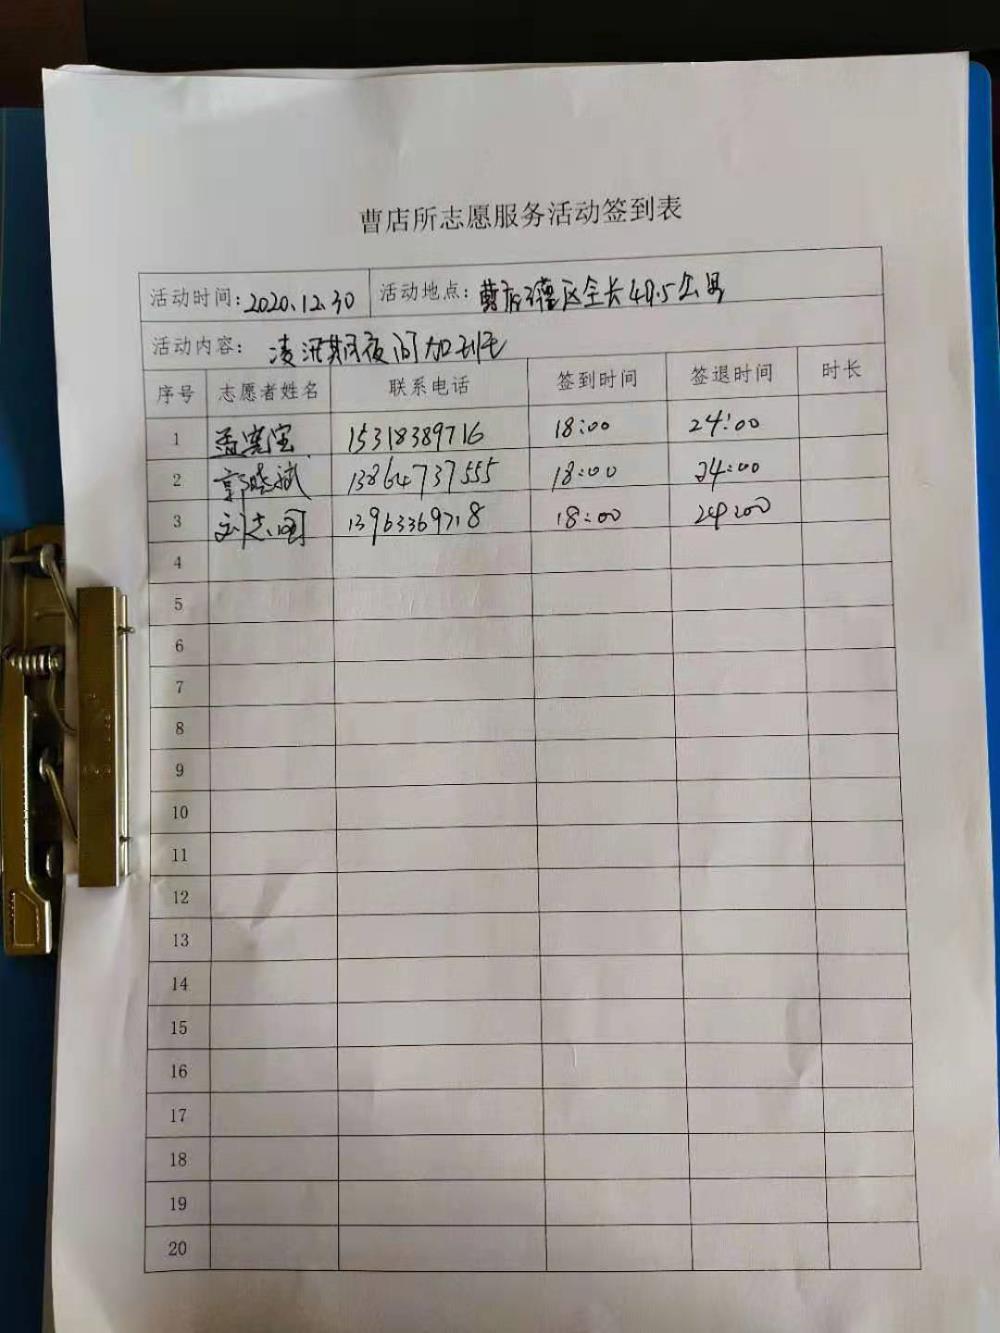 曹店所志愿服务活动签到表
活动时间: 2020.12.30 活动地点: 曹店灌区全长48.5公里
活动内容: 凌汛期夜间加班
序号 志愿者姓名 联系电话 签到时间 签退时间 时长
1 孟宪宝 15318389716 18:00 24:00
2 郭晓斌 13864737555 18:00 24:00
3 刘志国 13963369718 18:00 24:00
4
5
6
7
8
9
10
11
12
13
14
15
16
17
18
19
20